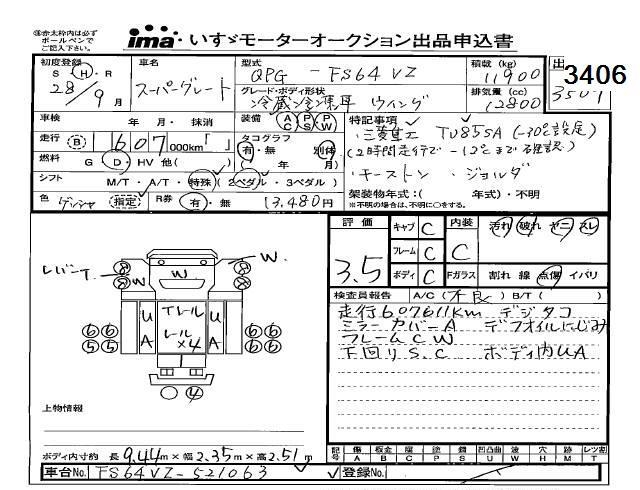 ※赤太枠内は必ず
ボールペンで
ご記入下さい。
ima・いすゞモーターオークション出品申込書
初度登録 車名 型式 QPG - FS64VZ 積載(kg) 11900 出
3406
S・H・R スーパーグレート グレード・ボディ形状 排気量(cc) 3501
28年9月 冷蔵冷凍車 ウィング 12800
車検 年 月・抹消 装備 AC PS PW 特記事項
走行 B 607 000km「 」 タコグラフ 三菱重工 TU85SA(-30℃設定)
有・無 別体 (2時間走行で-12℃まで確認)
燃料 G D・HV 他( ) ( 年 月) ・キーストン ・ジョルダ
シフト M/T・A/T・特殊(2ペダル・3ペダル) 架装物年式:( 年式)・不明
色 ゲンシャ 指定 R券 有・無 13,480円 ※不明の場合は、不明に○をする。
評価 3.5 キャブ C 内装 C 汚れ 破れ ヤニ スレ
フレーム C
ボディ C Fガラス 割れ 線 点傷 イバリ
検査員報告 A/C(不良) B/T( )
走行607611km デジタコ
ミラーカバーA デフオイルにじみ
フレームCW
下回りS.C ボディ内UA
レバーT. W W W
U Tレール U
A レール×4 A
6 6 6 6
5 5 5 5
4
上物情報
ボディ内寸約 長 9.44m×幅 2.35m×高 2.51m
記号 傷A 板金B 腐C 塗P 錆S 凹凸曲U 波W 穴H 跡M レツ割T
車台No. FS64VZ-521063 登録No.